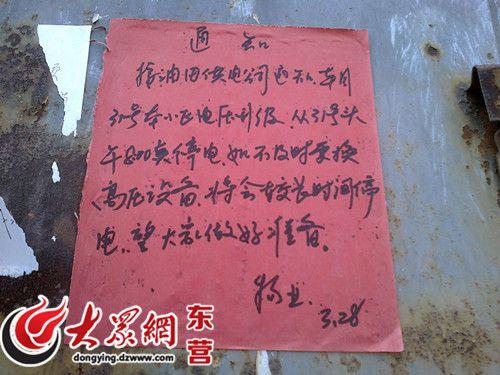 通知
接油田供电公司通知,本月
31号本小区电压升级,从31号头
午8:00点停电,如不及时更换
高压设备,将会有较长时间停
电,望大家做好准备。
物业.
3.28
大眾網 东营
dongying.dzwww.com